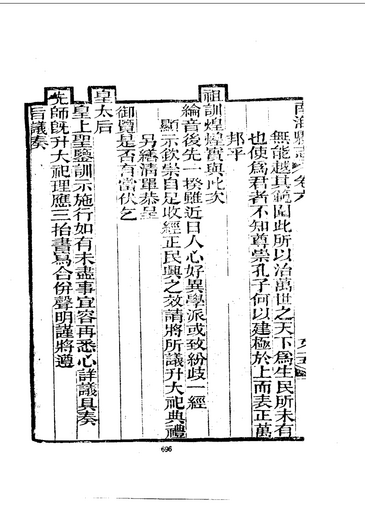 南海縣志 卷六
無能越其範圍此所以治萬世之天下為生民所未有
也使為君者不知尊崇孔子何以建極於上而表正萬
邦乎
祖訓煌煌實與此次
綸音後先一揆雖近日人心好異學派或致紛歧一經
顯示欽崇自足收經正民興之效請將所議升大祀典禮
另繕清單恭呈
御覽是否有當伏乞
皇太后
皇上聖鑒訓示施行如有未盡事宜容再悉心詳議具奏
先師既升大祀理應三抬書寫合併聲明謹將遵
旨議奏
696